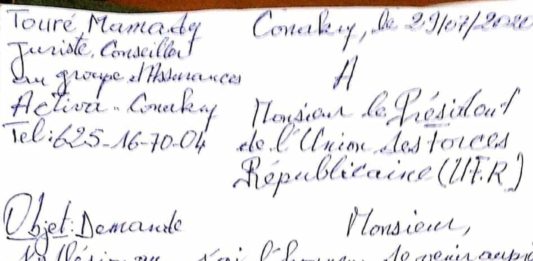 Touré, Mamady
Juriste, Conseiller
au groupe d'Assurances
Activa - Conakry
Tel: 625-16-70-04
Conakry, le 29/07/2020
A
Monsieur le Président
de l'Union des Forces
Républicaine (UF.R)
Objet: Demande
Monsieur,
j'ai l'honneur de venir